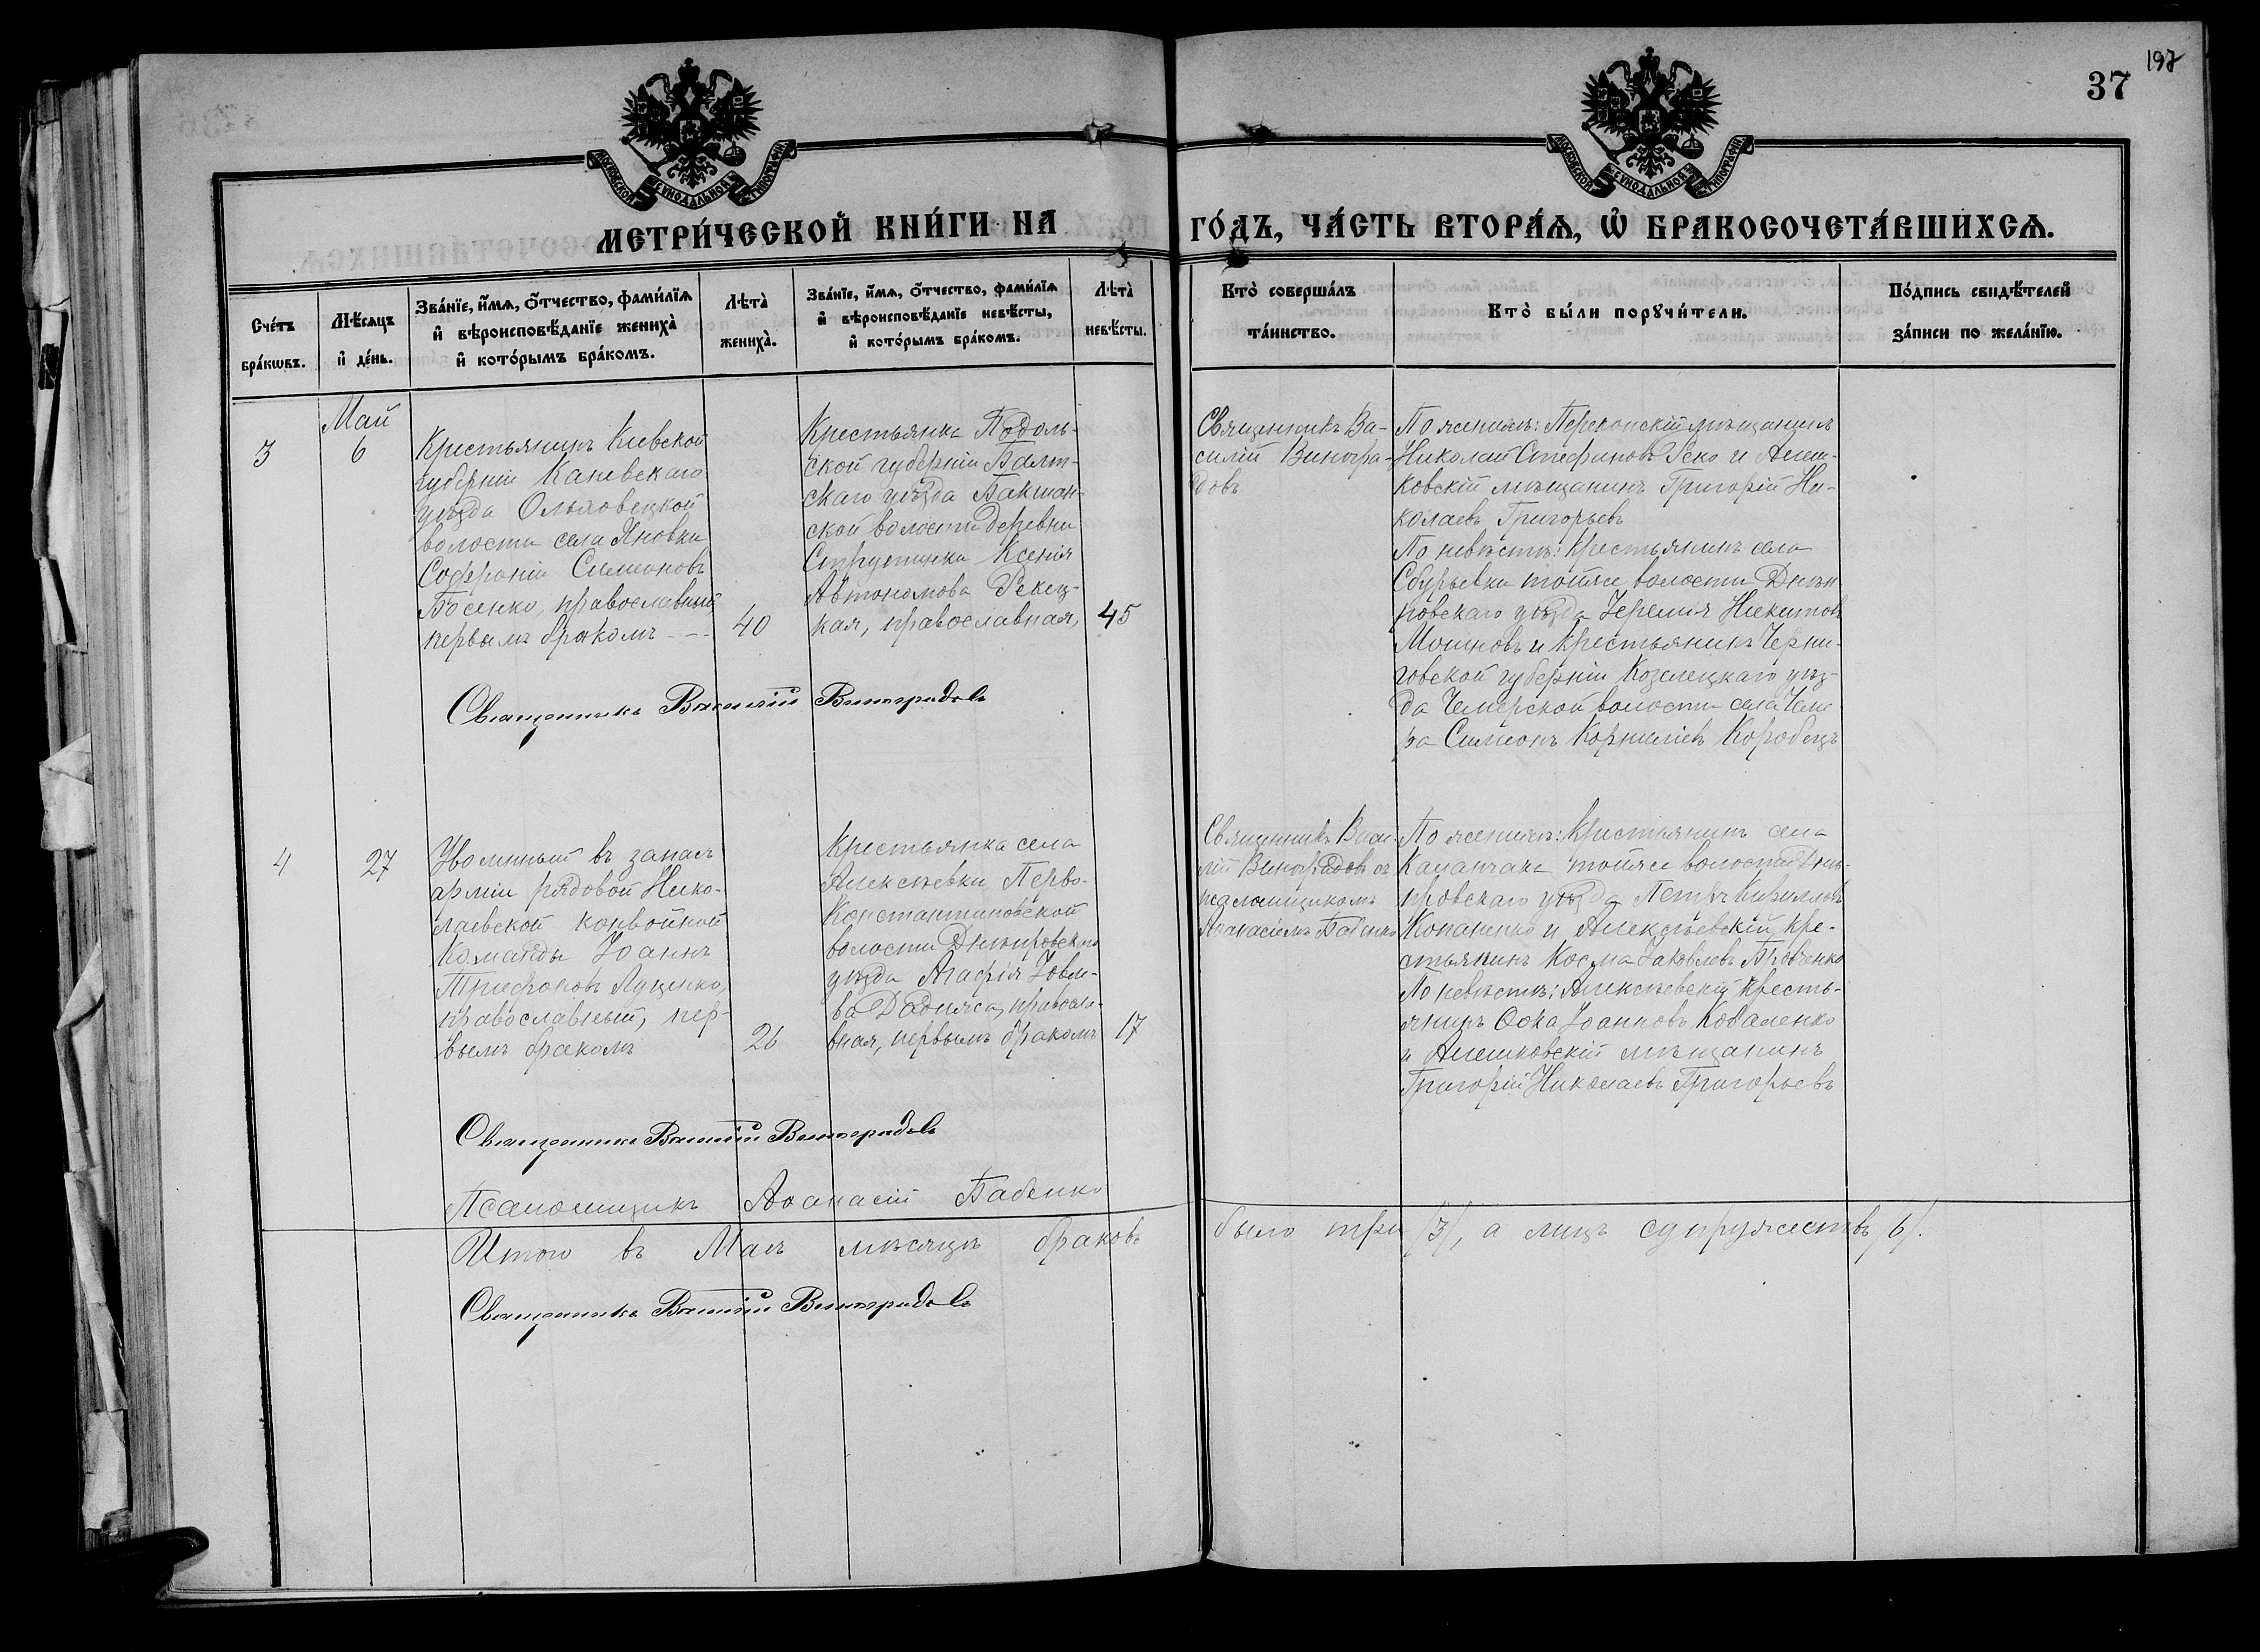 197
37
МОСКОВСКОЙ СѴНОДАЛЬНОЙ ТИПОГРАФІИ
МОСКОВСКОЙ СѴНОДАЛЬНОЙ ТИПОГРАФІИ
МЕТРИ́ЧЕСКОЙ КНИ́ГИ НА ГО́ДЪ, ЧА́СТЬ ВТОРА́Ѧ, Ѡ҆ БРАКОСОЧЕТА́ВШИХСѦ.
Сче́тъ
бра́кѡвъ.
Мѣ́сѧцъ
и҆ де́нь.
Зва́нїе, и҆́мѧ, ѻ҆́тчество, фами́лїѧ
и҆ вѣроисповѣ́данїе жениха̀
и҆ кото́рымъ бра́комъ.
Лѣта̀
жениха̀.
Зва́нїе, и҆́мѧ, ѻ҆́тчество, фами́лїѧ
и҆ вѣроисповѣ́данїе невѣ́сты,
и҆ кото́рымъ бра́комъ.
Лѣта̀
невѣ́сты.
Кто̀ соверша́лъ
та́инство.
Кто̀ бы́ли порꙋчи́тели.
По́дпись свидѣ́телей
за́писи по жела́нїю.
3
Май
6
Крестьянинъ Кіевской
губерніи Каневскаго
уѣзда Ольховецкой
волости села Яновки
Софроній Симеоновъ
Босенко, православный
первымъ бракомъ - -
40
Крестьянка Подоль-
ской губерніи Балт-
скаго уѣзда Бакшан-
ской волости деревни
Ксенія
Автономова
кая, православная,
45
Священникъ Ва-
силій Виногра-
довъ
По женихѣ: Перекопскій мѣщанинъ
Николай Стефановъ Реко и Алеш-
ковскій мѣщанинъ Григорій Ни-
колаевъ Григорьевъ
По невѣстѣ: Крестьянинъ села
Сбурьевки тойже волости Днѣп
ровскаго уѣзда Іеремія Никитовъ
и крестьянинъ Черни-
говской губерніи Козелецкаго уѣз-
да Чемерской волости села Чеме
ра Симеонъ Корниліевъ Коробецъ
Священникъ Василій Виноградовъ
4
27
Уволенный въ запасъ
арміи рядовой Нико-
лаевской конвойной
команды Іоаннъ
Трифоновъ Луценко,
православный, пер-
вымъ бракомъ
26
Крестьянка села
Алексѣевки Перво-
Константиновской
волости Днѣпровскаго
уѣзда Агафія Іовле-
ва православ-
вная, первымъ бракомъ
17
Священникъ Васи-
лій Виноградовъ съ
псаломщикомъ
Аѳанасіемъ Бабенко
По женихѣ: Крестьянинъ села
Каланчака тойже волости Днѣ-
провскаго уѣзда Петръ Кирилловъ
Копаненко и Алексѣевскій кре-
стьянинъ Косма Іаковлевъ
По невѣстѣ: Алексѣевскій кресть-
янинъ Ѳома Іоанновъ Коваленко
и Алешковскій мѣщанинъ
Григорій Николаевъ Григорьевъ
Священникъ Василій Виноградовъ
Псаломщикъ Аѳанасій Бабенко
Итого въ Маѣ мѣсяцѣ браковъ было три /3/, а лицъ супружествъ /6/.
Священникъ Василій Виноградовъ